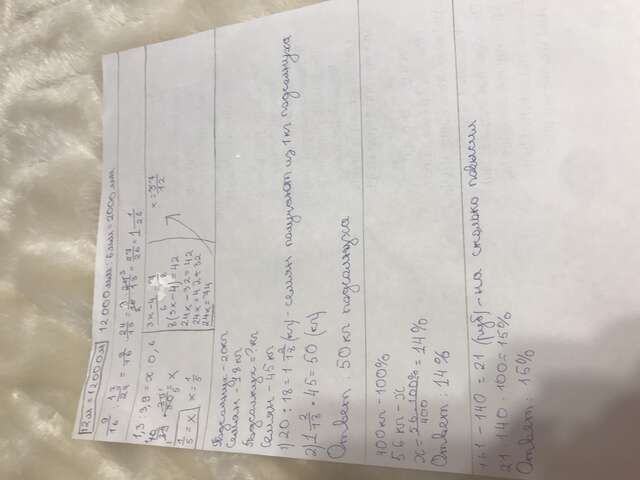 12м = 12000м
12000мм : 6мм = 2000 мм
9/16 : 13/24 = 9/16 · 24/13 = 27/26 = 1 1/26
1,3 : 3,9 = x : 0,6
1/5 = x   x = 1/5
3x-4
8(3x-4) = 42
24x - 32 = 42
24x = 42 + 32
24x = 74
x = 37/12
Подсолнух - 20кг
Семян - 18 кг
Подсолнух = ? кг
Семян - 45 кг
1) 20 : 18 = 1 2/18 (кг) - семян получают из 1 кг подсолнуха
2) 1 2/18 · 45 = 50 (кг)
Ответ: 50 кг подсолнуха
400кг - 100%
56 кг - x
x = 56·100%/400 = 14%
Ответ: 14%
161 - 140 = 21 (руб) - на сколько повысил
21 : 140 · 100 = 15%
Ответ: 15%